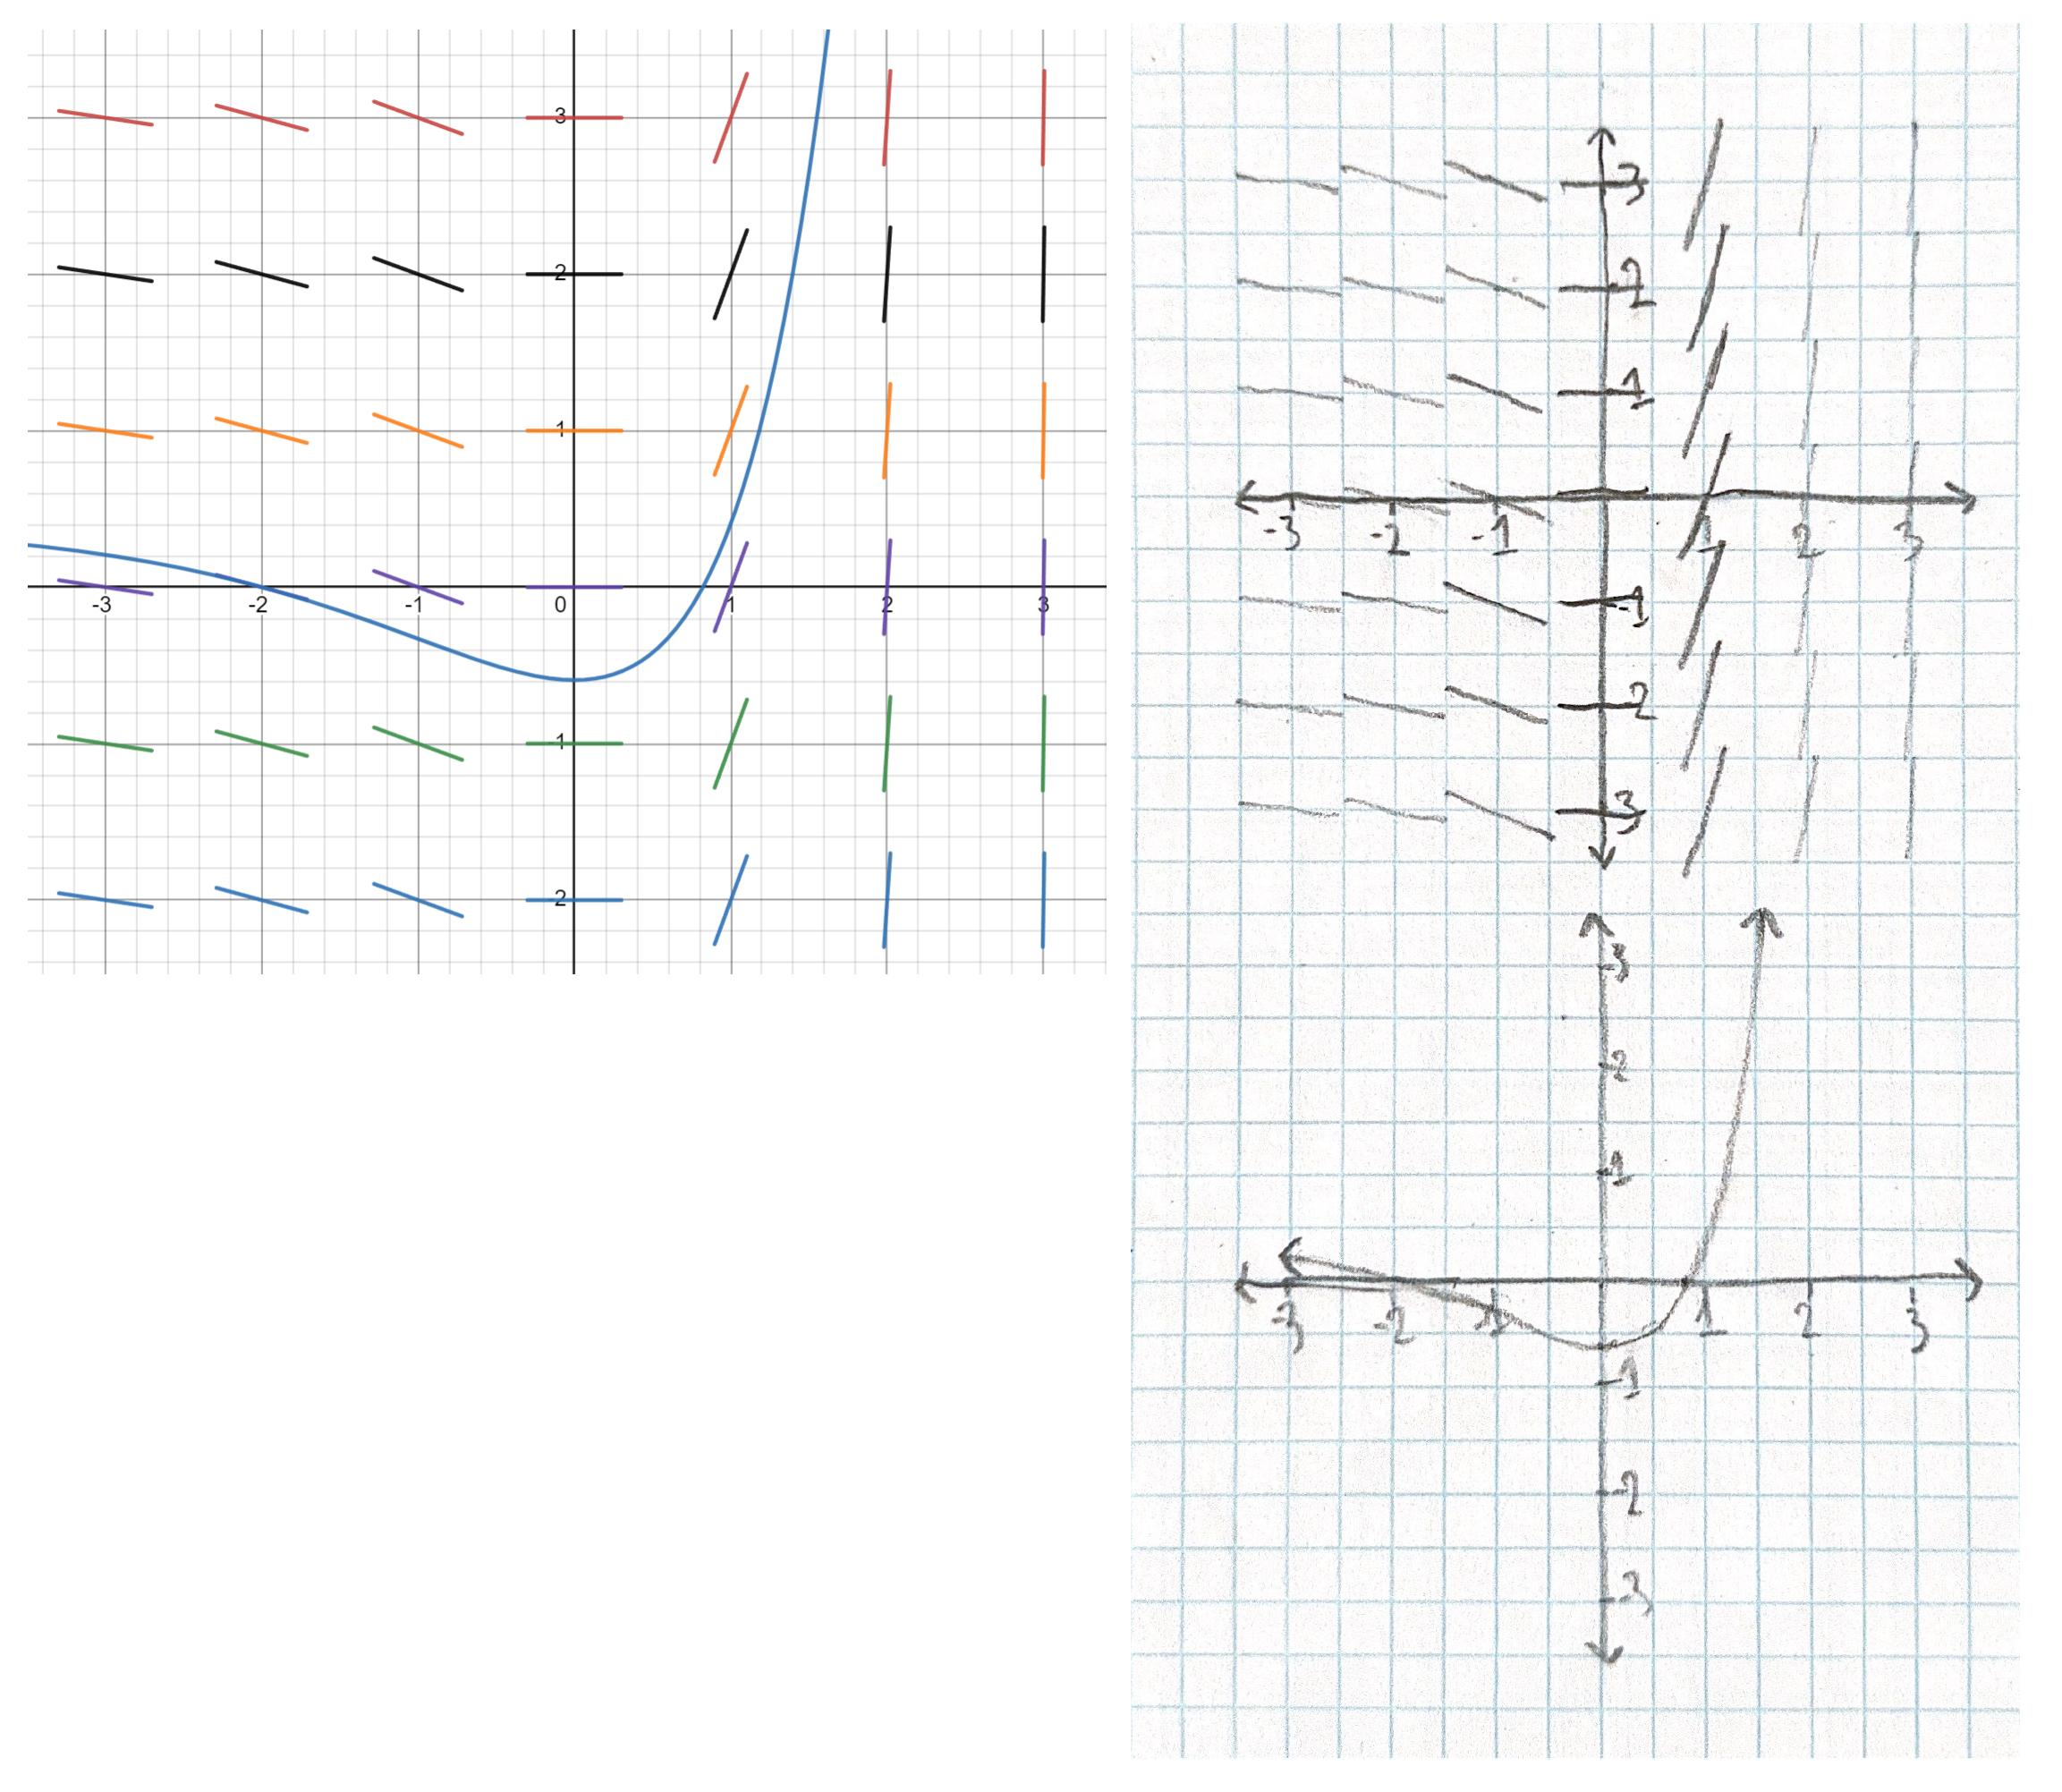 3
2
1
-3 -2 -1 0 1 2 3
-1
-2
3
2
1
-3 -2 -1 1 2 3
-1
-2
-3
-3
-2
-1
-3 -2 -1 1 2 3
-1
-2
-3